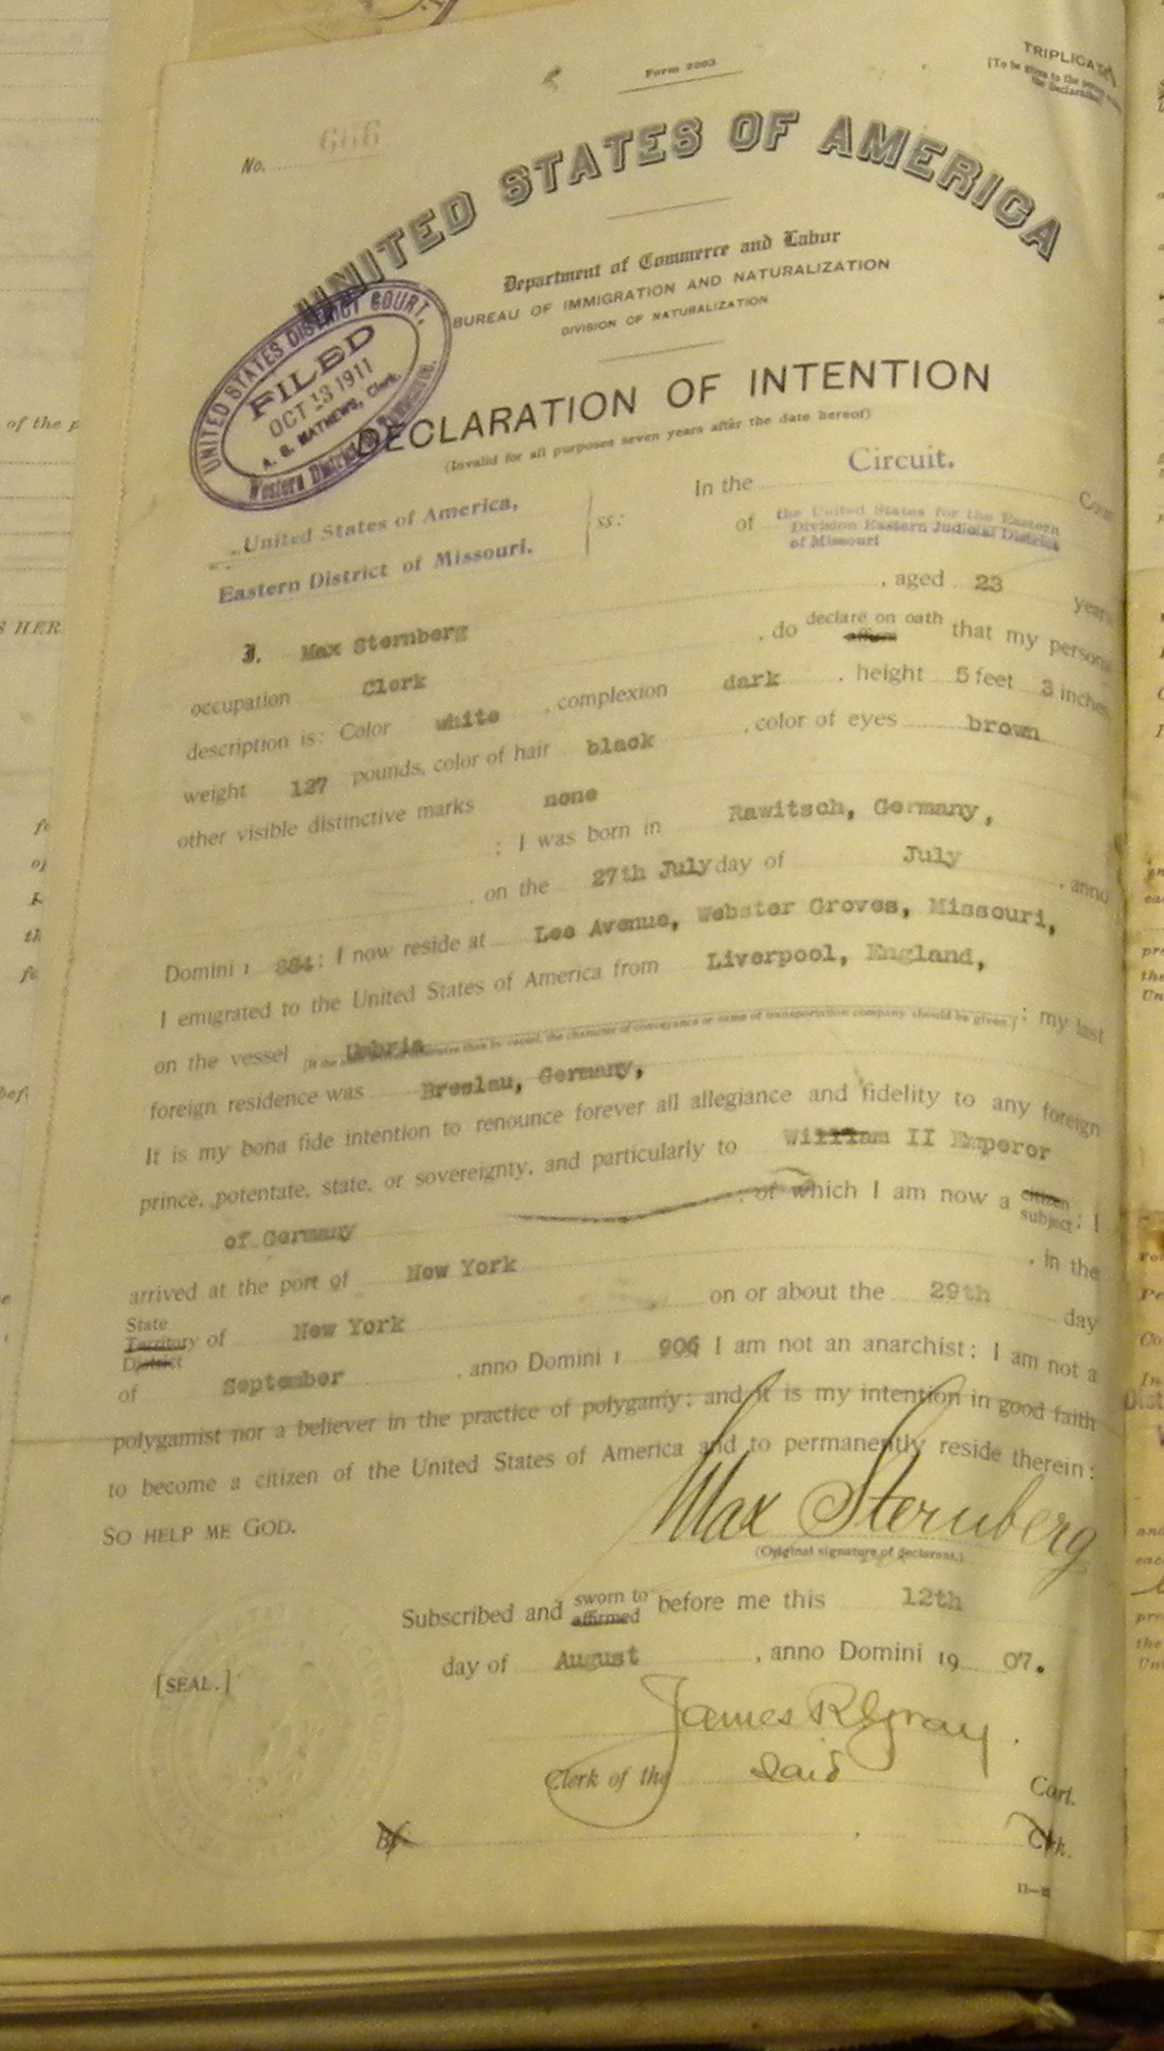 TRIPLICATE
Form 2203
[To be given to the person making
the Declaration]
No. 666
UNITED STATES OF AMERICA
Department of Commerce and Labor
BUREAU OF IMMIGRATION AND NATURALIZATION
DIVISION OF NATURALIZATION
UNITED STATES DISTRICT COURT,
FILED
OCT 13 1911
A. G. MATHEWS, Clerk.
Western District
DECLARATION OF INTENTION
(Invalid for all purposes seven years after the date hereof)
United States of America,
Eastern District of Missouri.
ss:
In the Circuit. Court
of the United States for the Eastern
Division Eastern Judicial District
of Missouri
I, Max Sternberg, aged 23 years
occupation Clerk, do declare on oath affirm that my personal
description is: Color white, complexion dark, height 5 feet 3 inches,
weight 127 pounds, color of hair black, color of eyes brown
other visible distinctive marks none
; I was born in Rawitsch, Germany,
, on the 27th July day of July, anno
Domini 1 884; I now reside at Lee Avenue, Webster Groves, Missouri,
I emigrated to the United States of America from Liverpool, England,
on the vessel Umbria; my last
[If the alien arrived otherwise than by vessel, the character of conveyance or name of transportation company should be given.]
foreign residence was Breslau, Germany,
It is my bona fide intention to renounce forever all allegiance and fidelity to any foreign
prince, potentate, state, or sovereignty, and particularly to William II Emperor
of Germany; of which I am now a citizen subject; I
arrived at the port of New York, in the
State Territory District of New York on or about the 29th day
of September, anno Domini 1 906 I am not an anarchist; I am not a
polygamist nor a believer in the practice of polygamy; and it is my intention in good faith
to become a citizen of the United States of America and to permanently reside therein:
SO HELP ME GOD.
Max Sternberg
(Original signature of declarant.)
Subscribed and sworn to affirmed before me this 12th
[SEAL.]
day of August, anno Domini 19 07.
James R Gray.
Clerk of the said Court.
By Clerk.